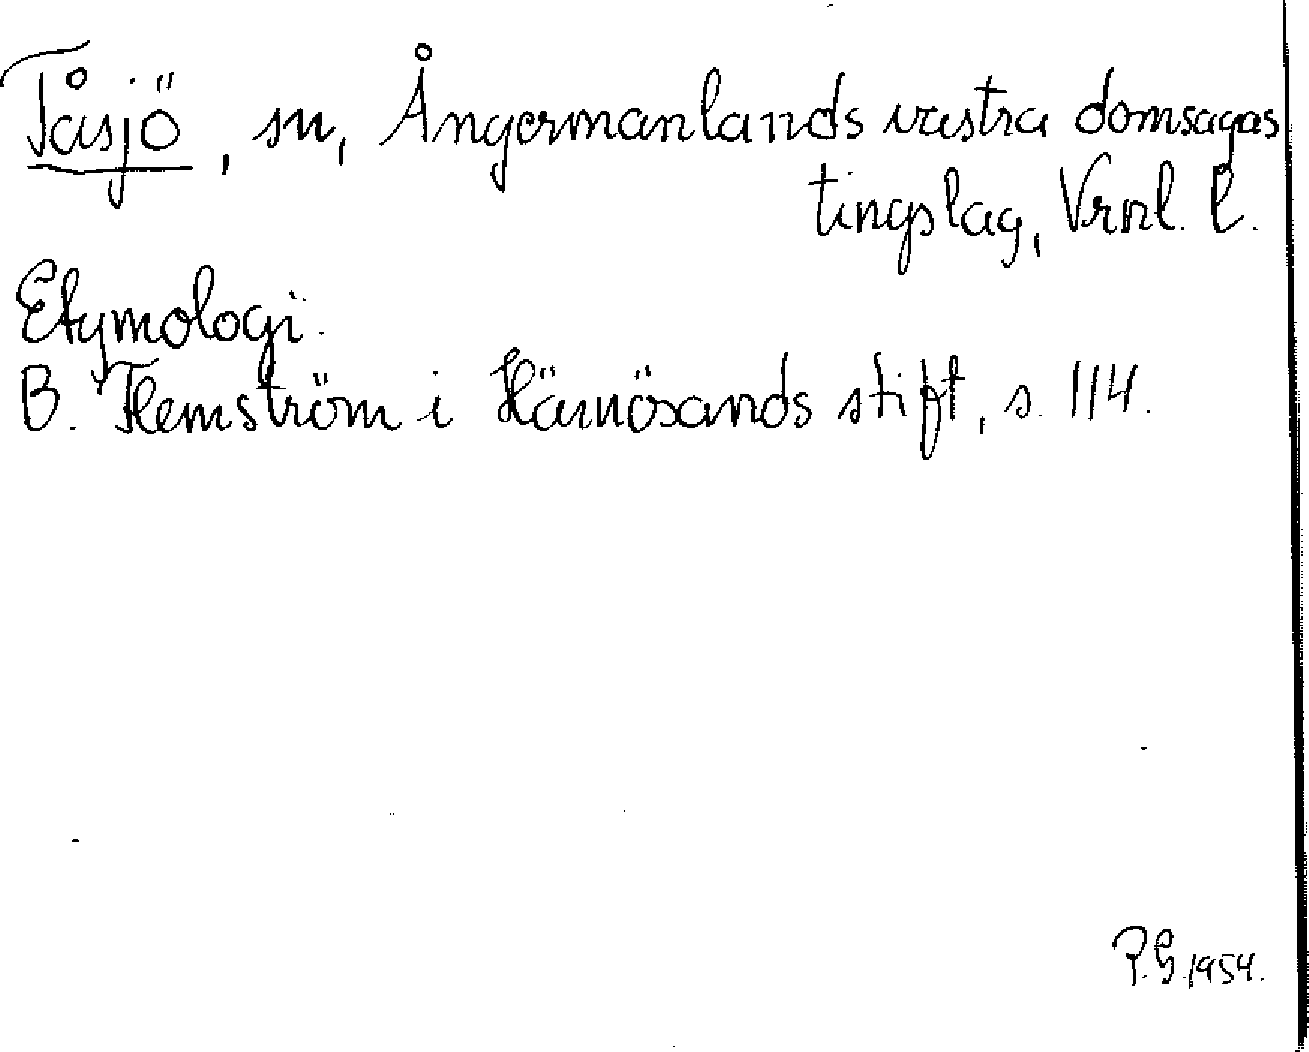 Tåsjö, sn, Ångermanlands västra domsagas
tingslag, Vrnl. l.
Etymologi:
B. Flemström i Härnösands stift, s. 114.
P.G. 1954.